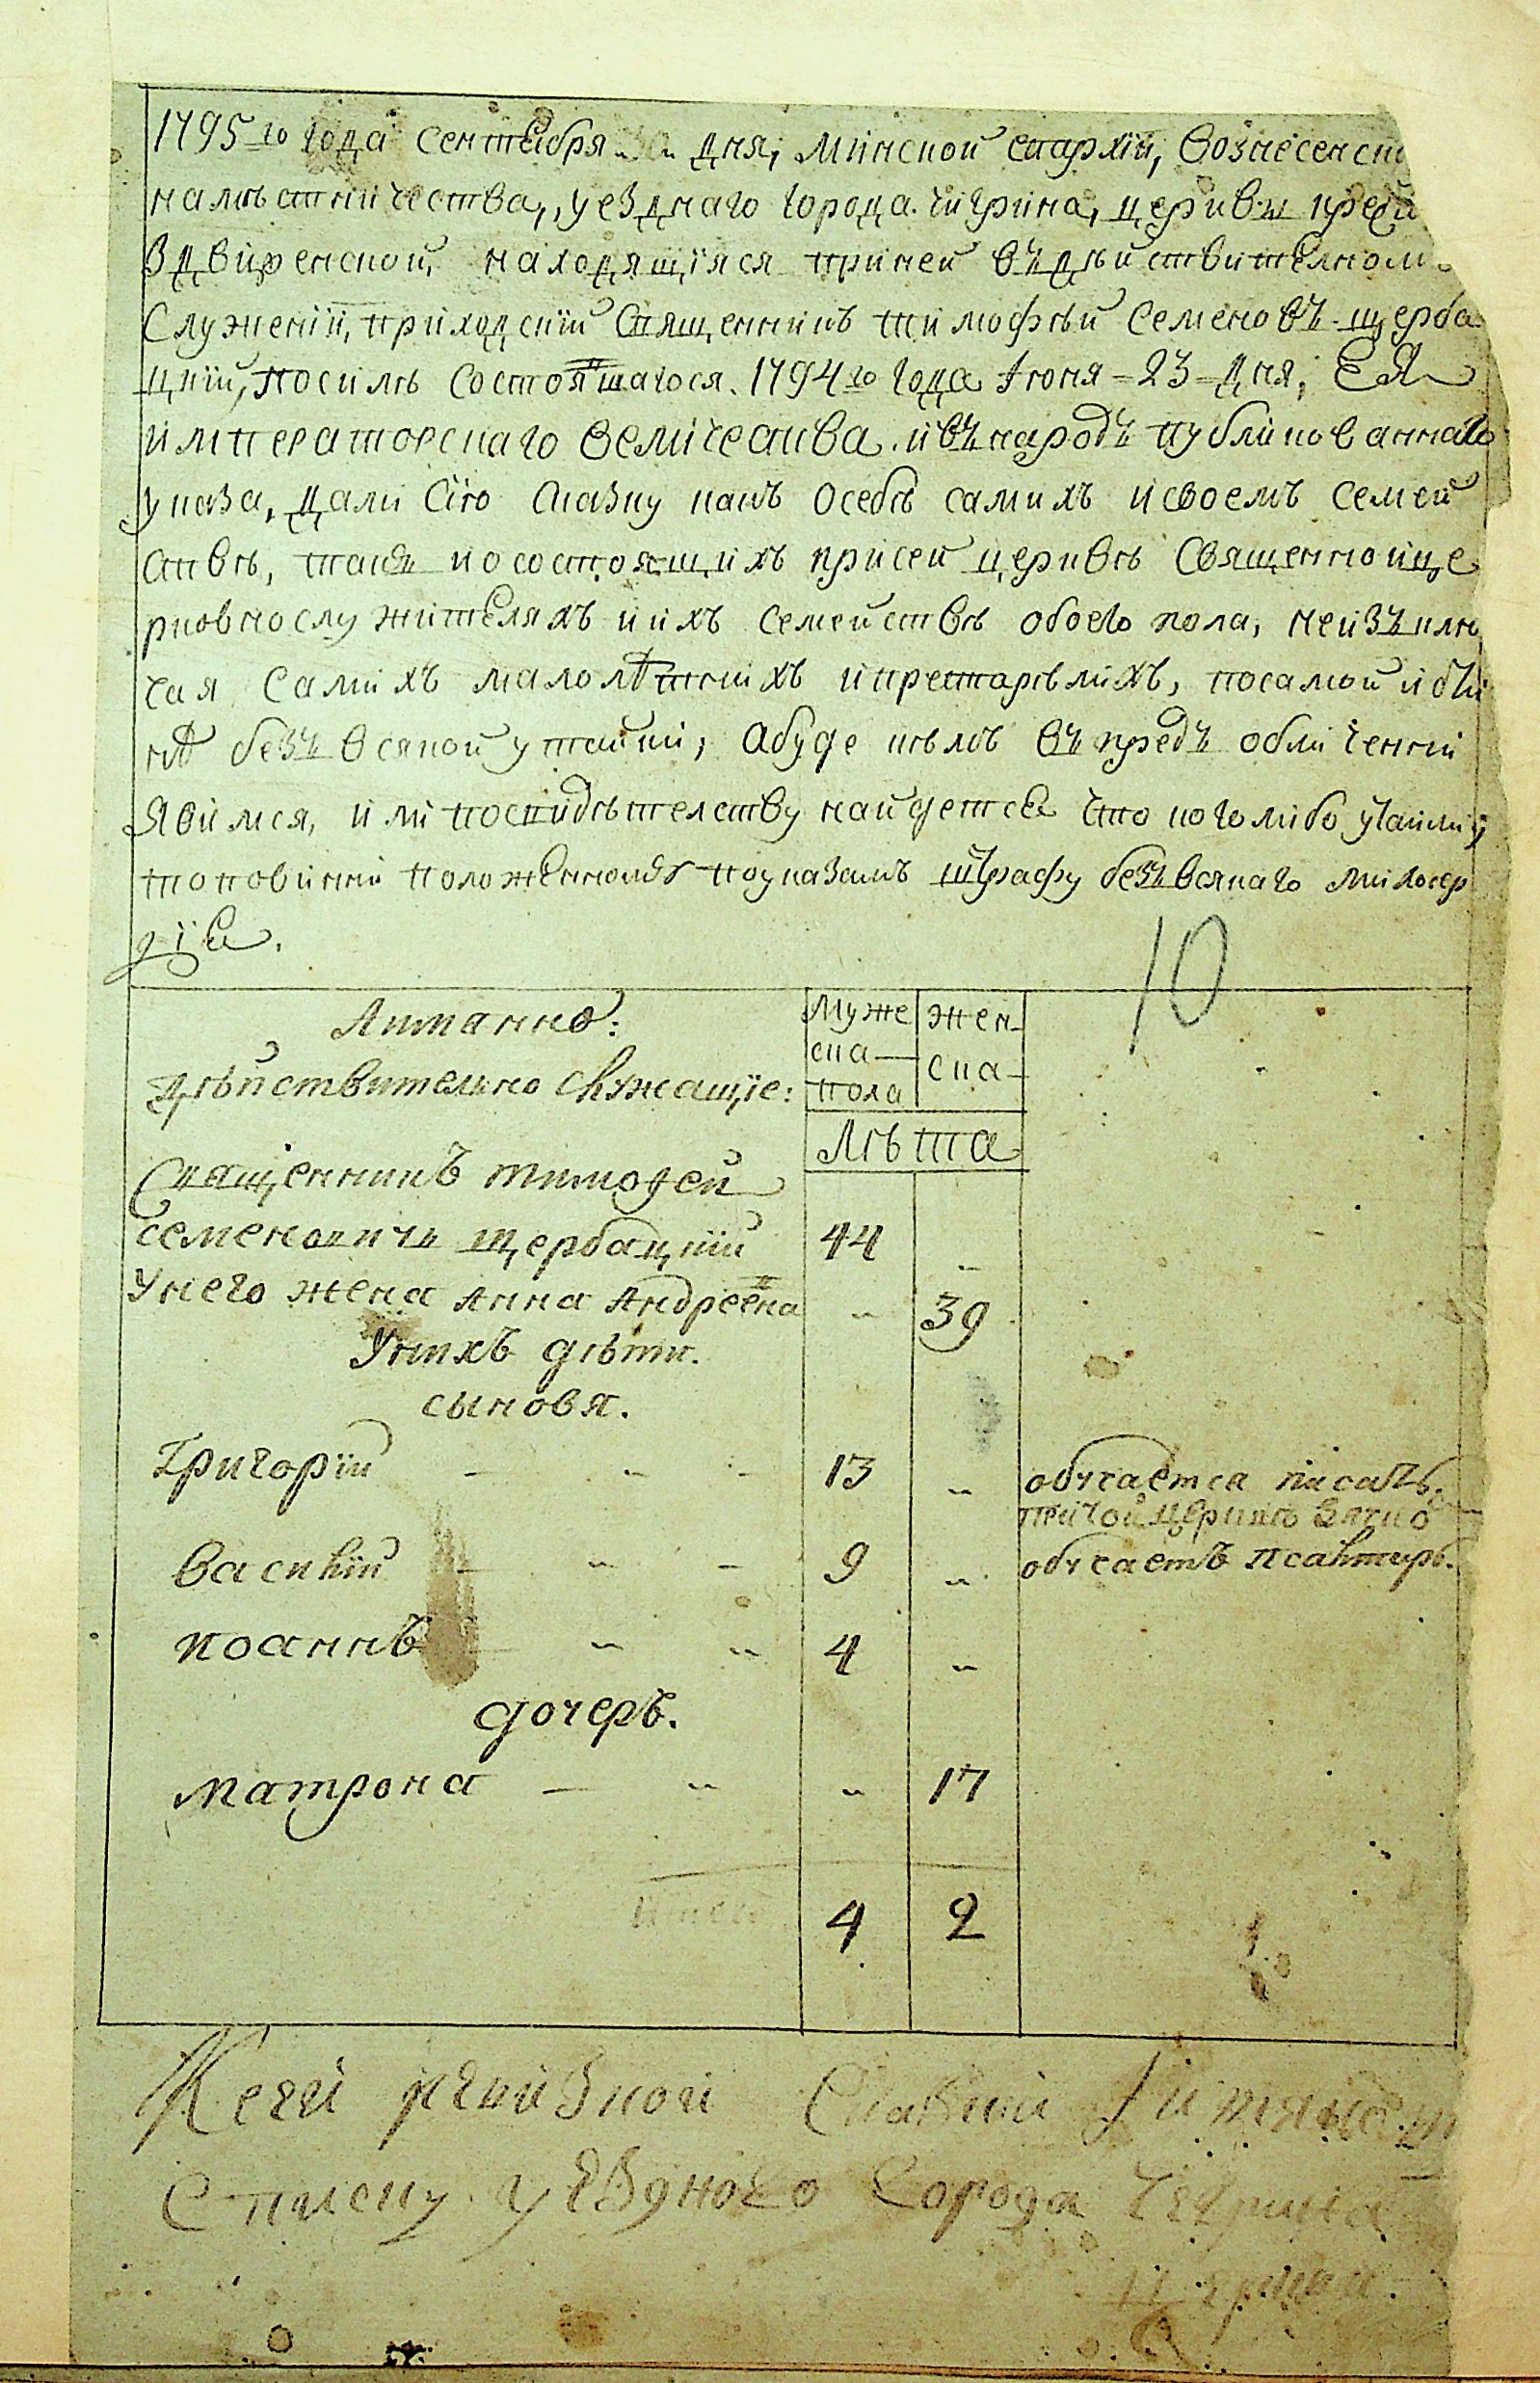 1795го года сентебря 30 дня, минской епархїи, вознесенск
намѣстничества, уезднаго города чигрина, церквы кресто
здвиженской, находящїяся приней въдѣйствителном
служенїи, приходскїи священникъ тимофѣй семеновъ щерба
цкїи, посилѣ состоявшагося 1794го года Iюня 23 дня, ЕЯ
императорскаго величества ивънародъ публикованнаго
указа, дали сїю сказку какъ осебѣ самихъ исвоемъ семей
ствѣ, такъ иосостоящихъ присей церквѣ священноице
рковнослужителяхъ иихъ семействѣ обоего пола, неизъклю
чая самихъ малолѣтнихъ ипрестарѣлихъ, посамой исти
нѣ безъ всякой утайки, абуде кѣмъ въпредъ обличенни
явимся, или посвидѣтелству найдется что кого либо утаили,
топовинни положенному поуказамъ штрафу безъ всякаго милосер
дїя.
10
Аштанно:
дѣйствительно служащїе:
муже ска пола
жен ска
лѣта
Священникъ тимофей
семеновичъ щербацкїй 44 „
Унего жена анна андреевна „ 39
Унихъ дѣти.
сыновя.
григорїй 13 „ обучается писать.
василїй 9 „ обучаетъ псалтирь.
иоаннъ 4 „
дочеръ.
матрона „ 17
4 2
К сей ревизкой сказки
уездного города чигрина